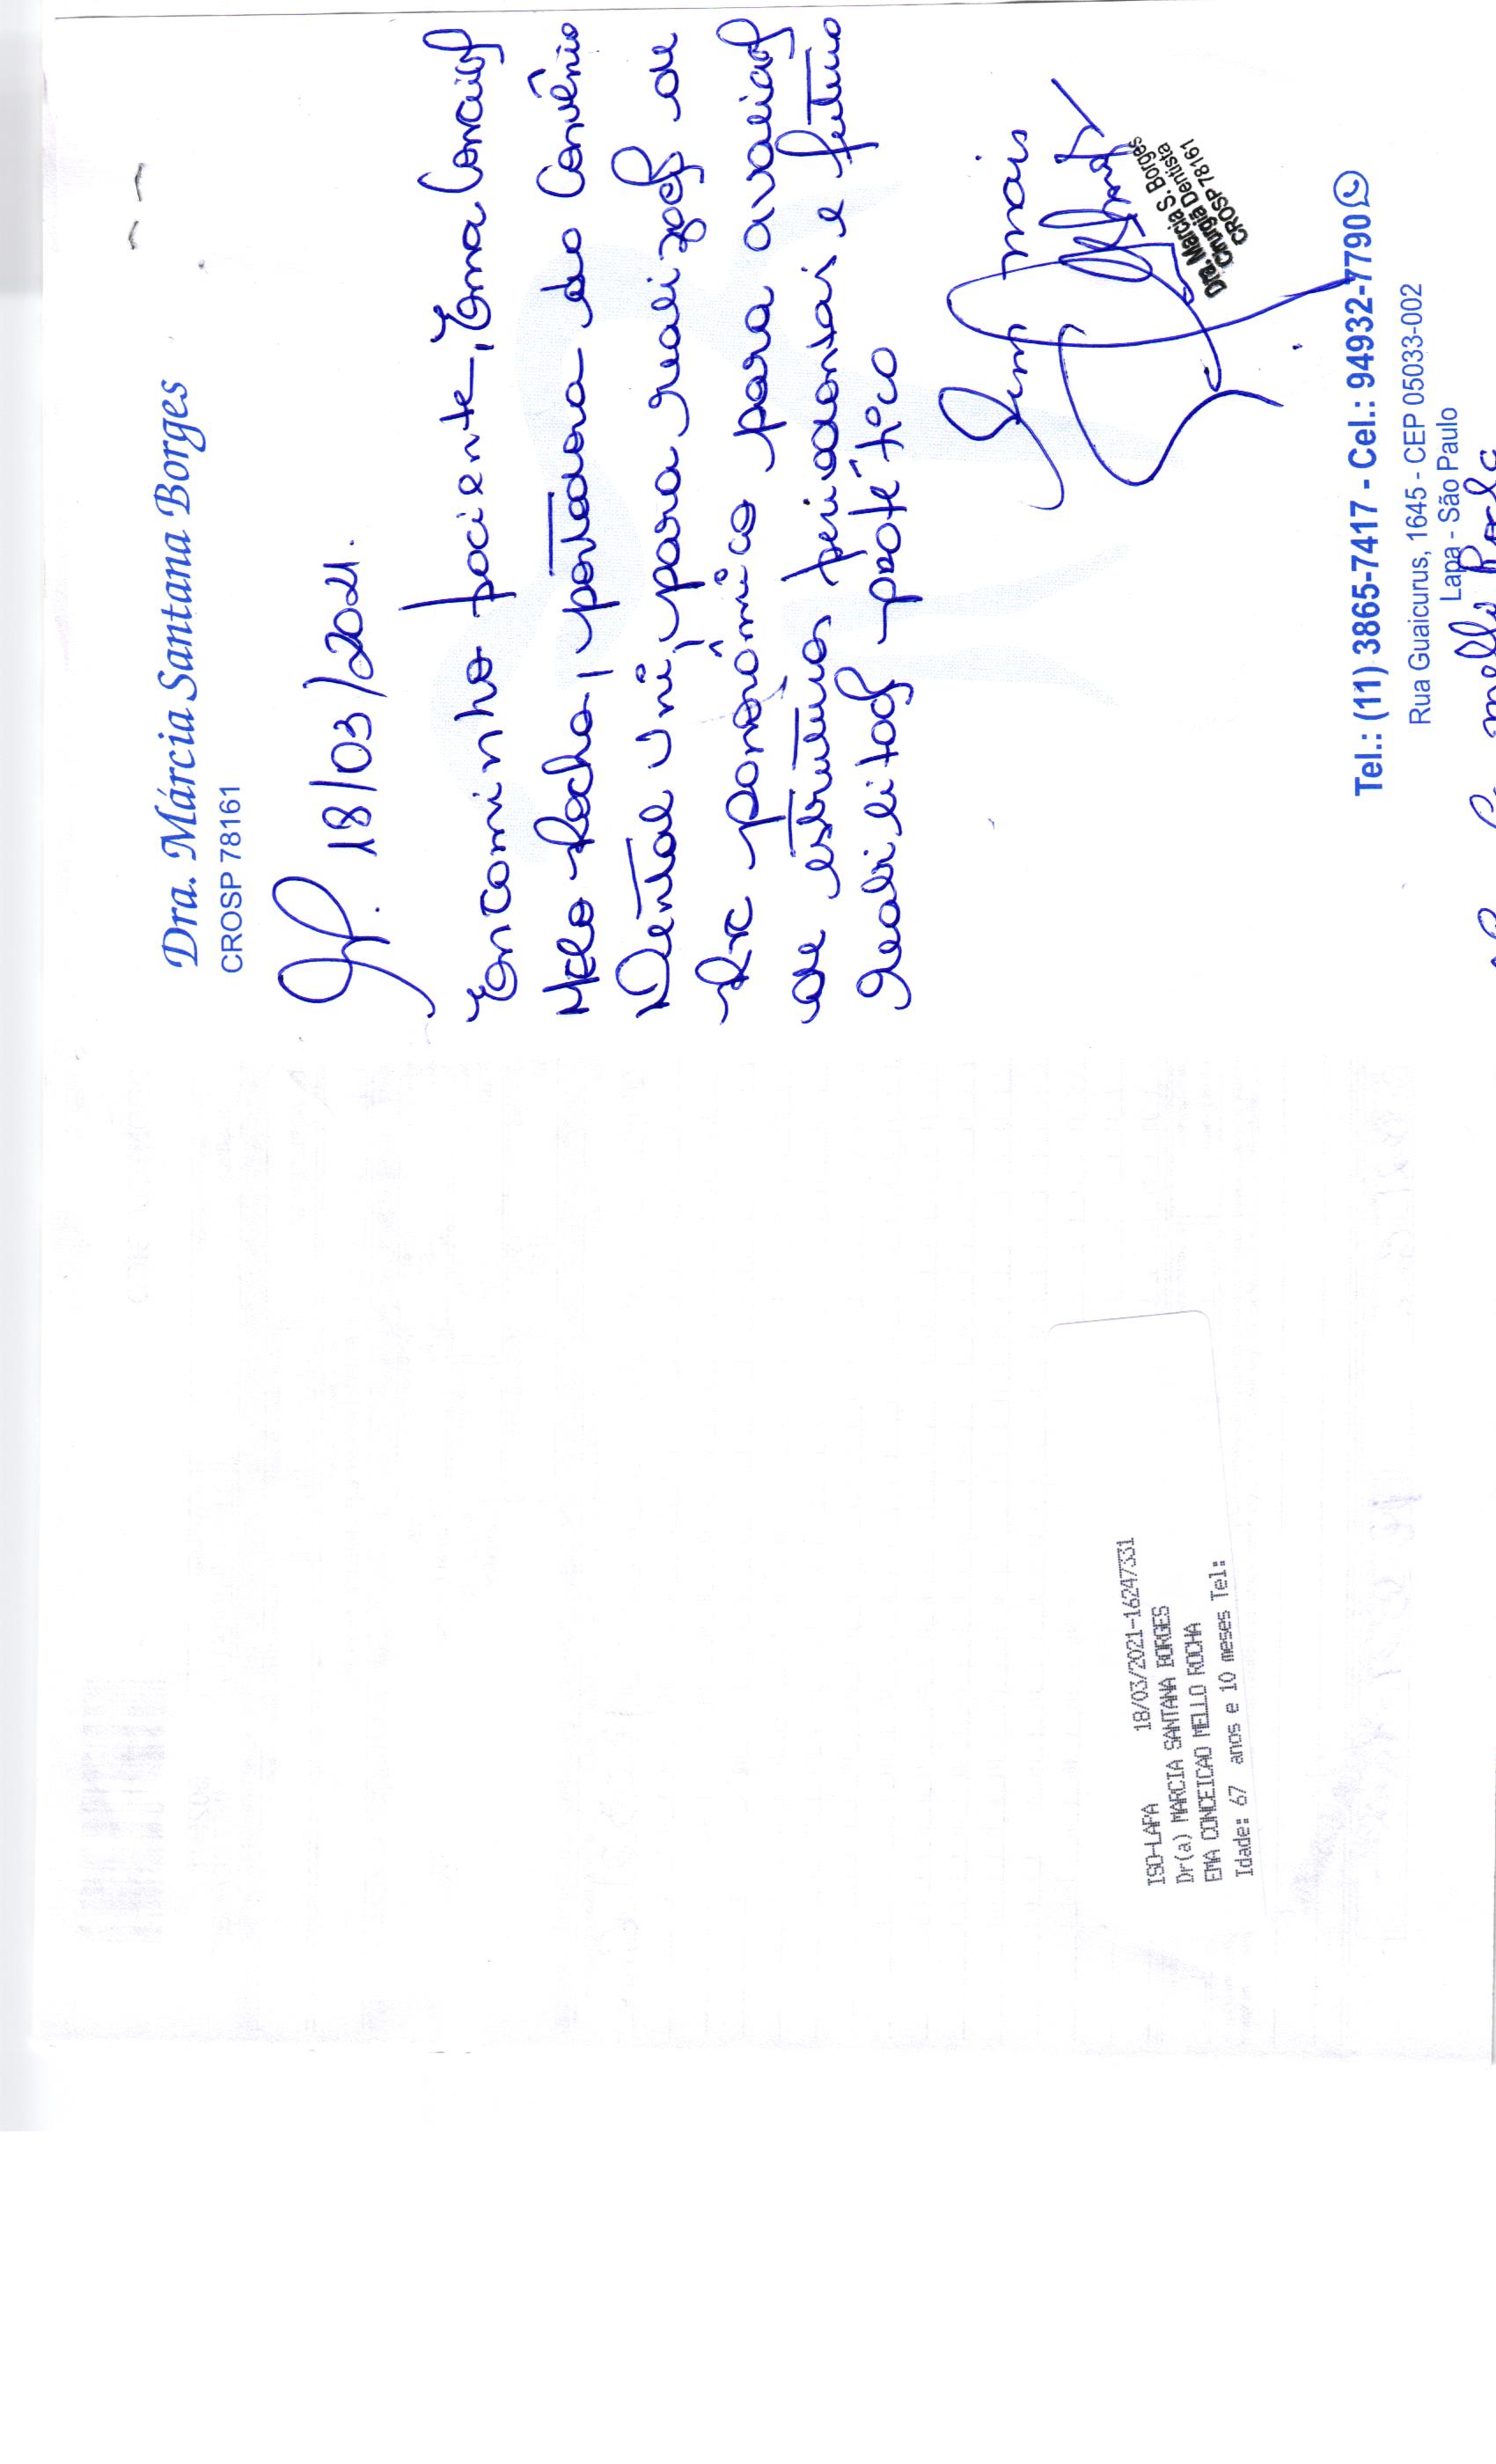 Dra. Márcia Santana Borges
CROSP 78161
SP. 18/03/2021.
Encaminho paciente, Ema Conceição
Mello Rocha, portadora do Convênio
Dental Uni, para realização de
Rx panorâmico para avaliação
de estruturas periodontais e futuro
reabilitação protético
Sem mais
Dra. Marcia S. Borges
Cirurgiã Dentista
CROSP 78161
Tel.: (11) 3865-7417 - Cel.: 94932-7790
Rua Guaicurus, 1645 - CEP 05033-002
Lapa - São Paulo
Mello Rocha
ISO-LAPA 18/03/2021-16247331
Dr(a) MARCIA SANTANA BORGES
EMA CONCEICAO MELLO ROCHA
Idade: 67 anos e 10 meses Tel: